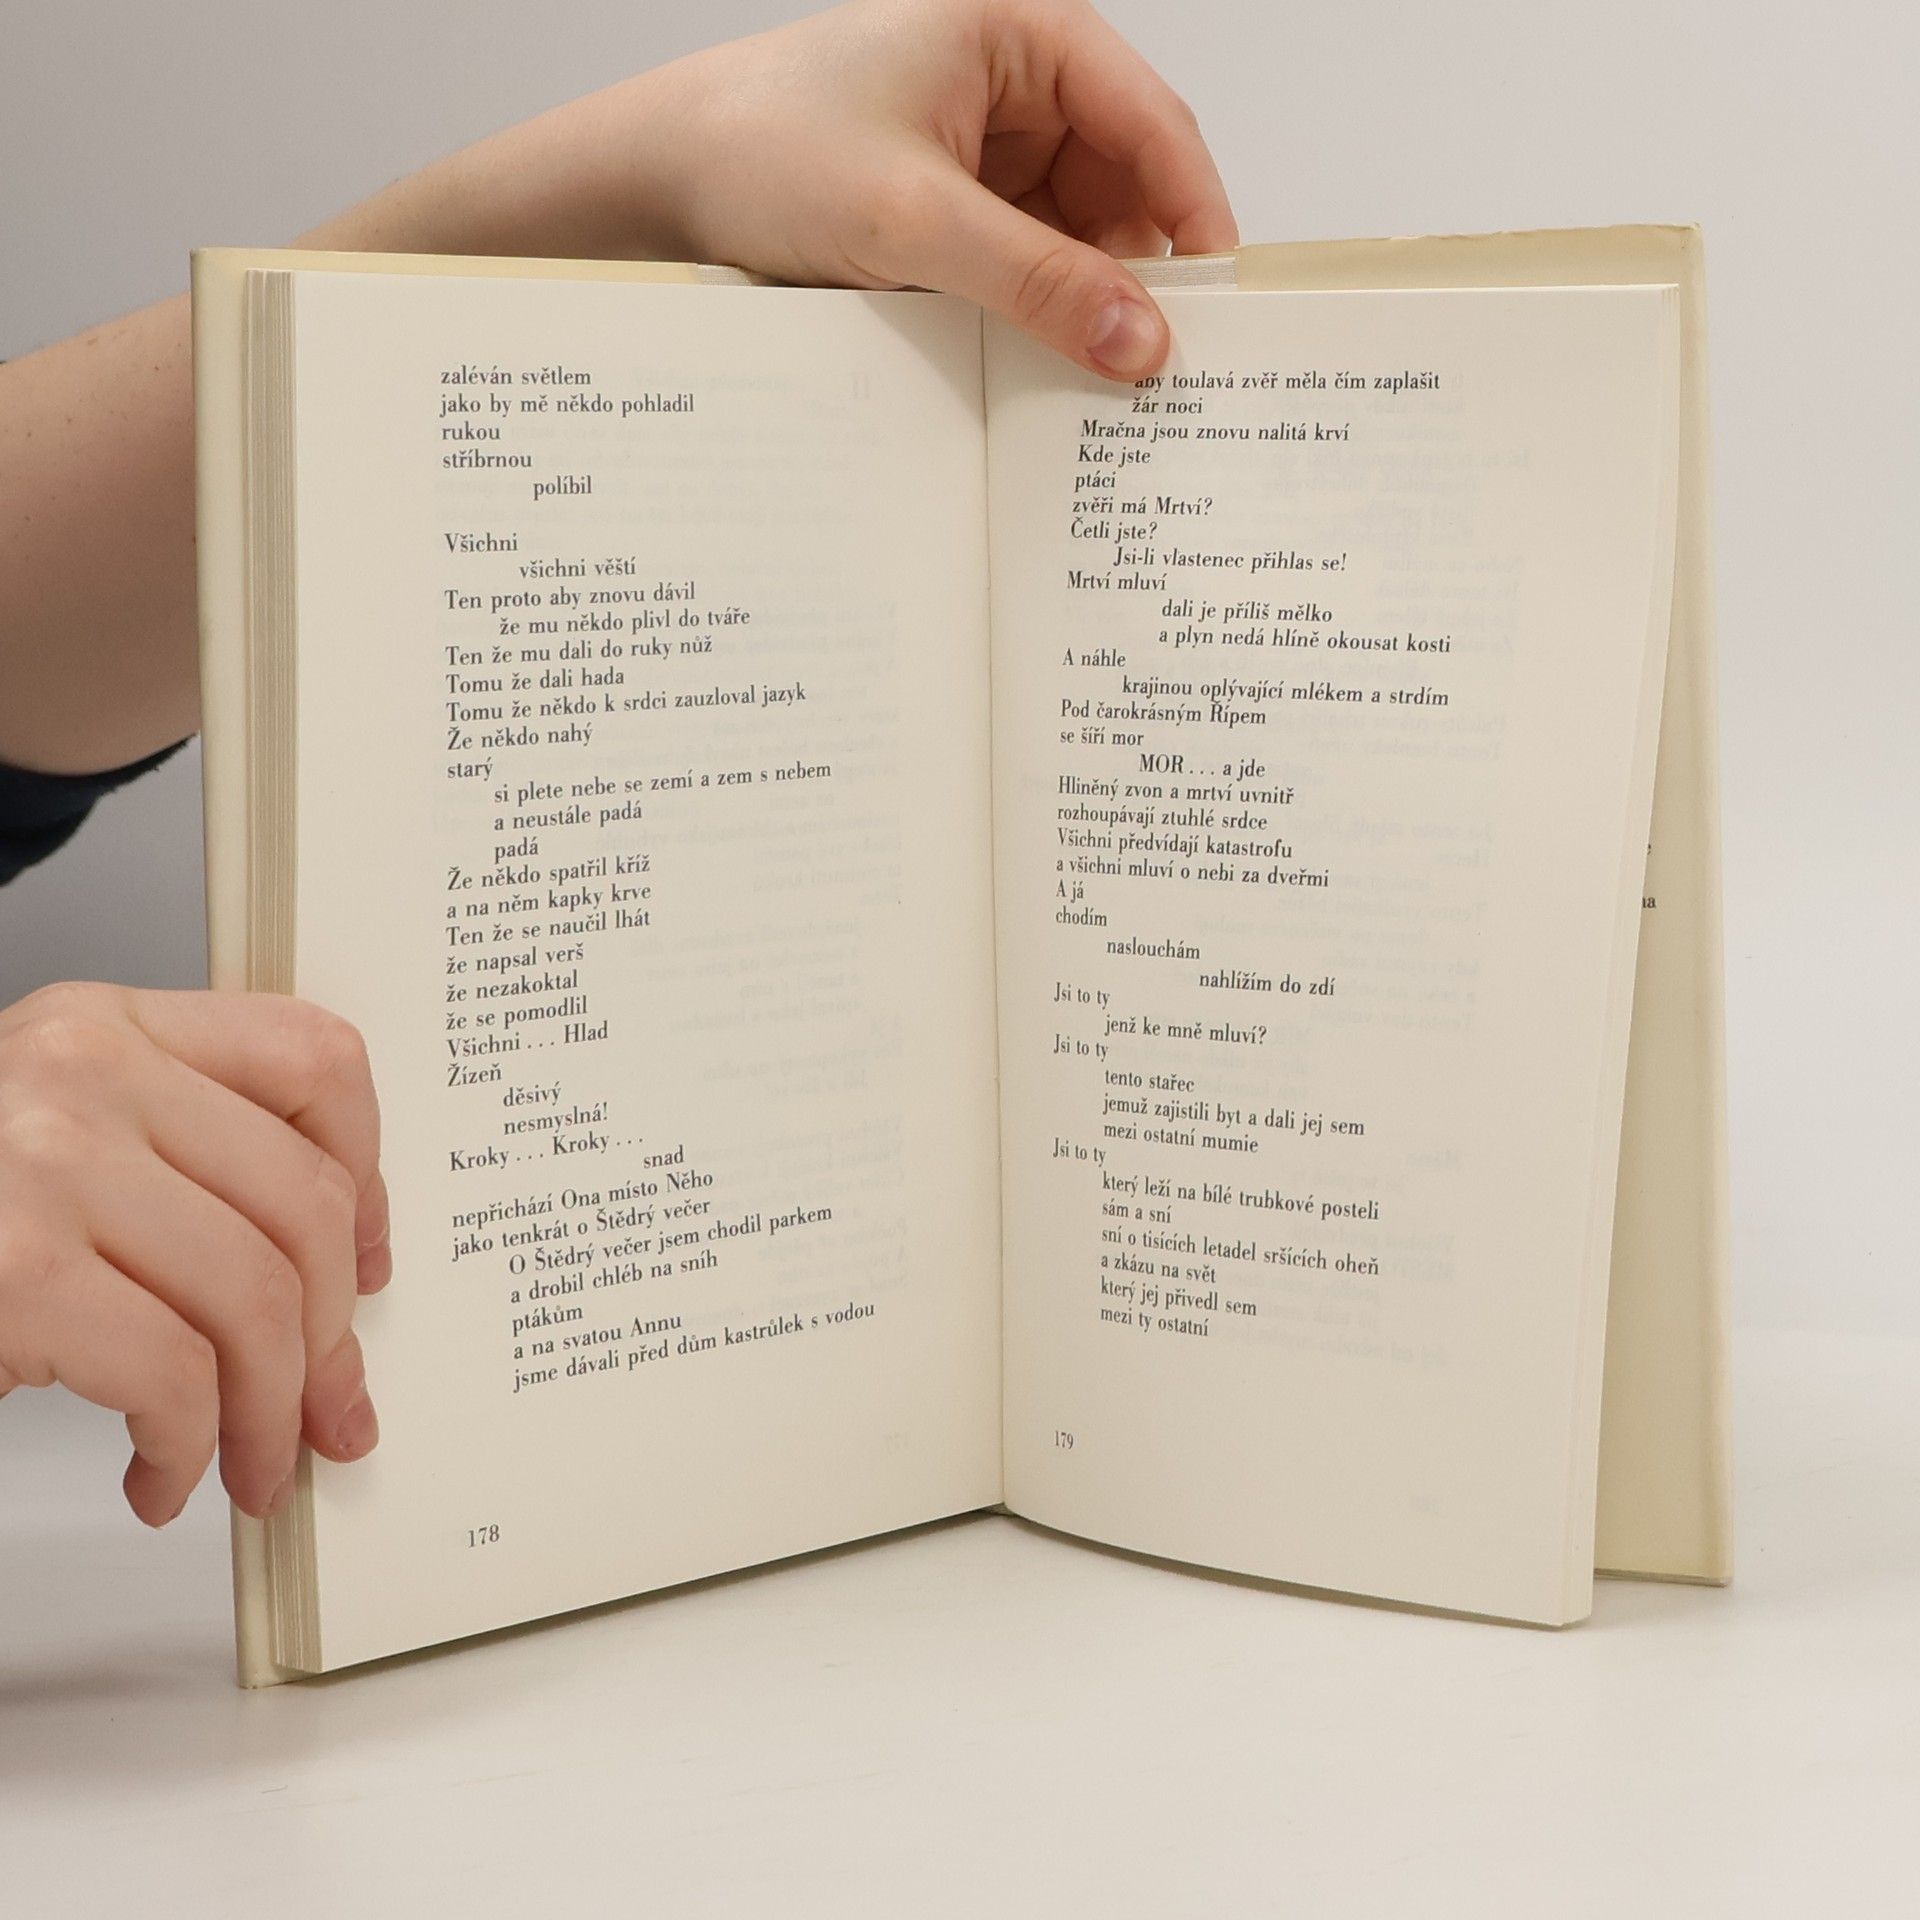 zaléván světlem
jako by mě někdo pohladil
rukou
stříbrnou
políbil
Všichni
všichni věští
Ten proto aby znovu dávil
že mu někdo plivl do tváře
Ten že mu dali do ruky nůž
Tomu že dali hada
Tomu že někdo k srdci zauzloval jazyk
Že někdo nahý
starý
si plete nebe se zemí a zem s nebem
a neustále padá
padá
Že někdo spatřil kříž
a na něm kapky krve
Ten že se naučil lhát
že napsal verš
že nezakoktal
že se pomodlil
Všichni . . . Hlad
Žízeň
děsivý
nesmyslná!
Kroky . . . Kroky . . .
snad
nepřichází Ona místo Něho
jako tenkrát o Štědrý večer
O Štědrý večer jsem chodil parkem
a drobil chléb na sníh
ptákům
a na svatou Annu
jsme dávali před dům kastrůlek s vodou
178
aby toulavá zvěř měla čím zaplašit
žár noci
Mračna jsou znovu nalitá krví
Kde jste
ptáci
zvěři má Mrtví?
Četli jste?
Jsi-li vlastenec přihlas se!
Mrtví mluví
dali je příliš mělko
a plyn nedá hlíně okousat kosti
A náhle
krajinou oplývající mlékem a strdím
Pod čarokrásným Řípem
se šíří mor
MOR . . . a jde
Hliněný zvon a mrtví uvnitř
rozhoupávají ztuhlé srdce
Všichni předvídají katastrofu
a všichni mluví o nebi za dveřmi
A já
chodím
naslouchám
nahlížím do zdí
Jsi to ty
jenž ke mně mluví?
Jsi to ty
tento stařec
jemuž zajistili byt a dali jej sem
mezi ostatní mumie
Jsi to ty
který leží na bílé trubkové posteli
sám a sní
sní o tisících letadel sršících oheň
a zkázu na svět
který jej přivedl sem
mezi ty ostatní
179